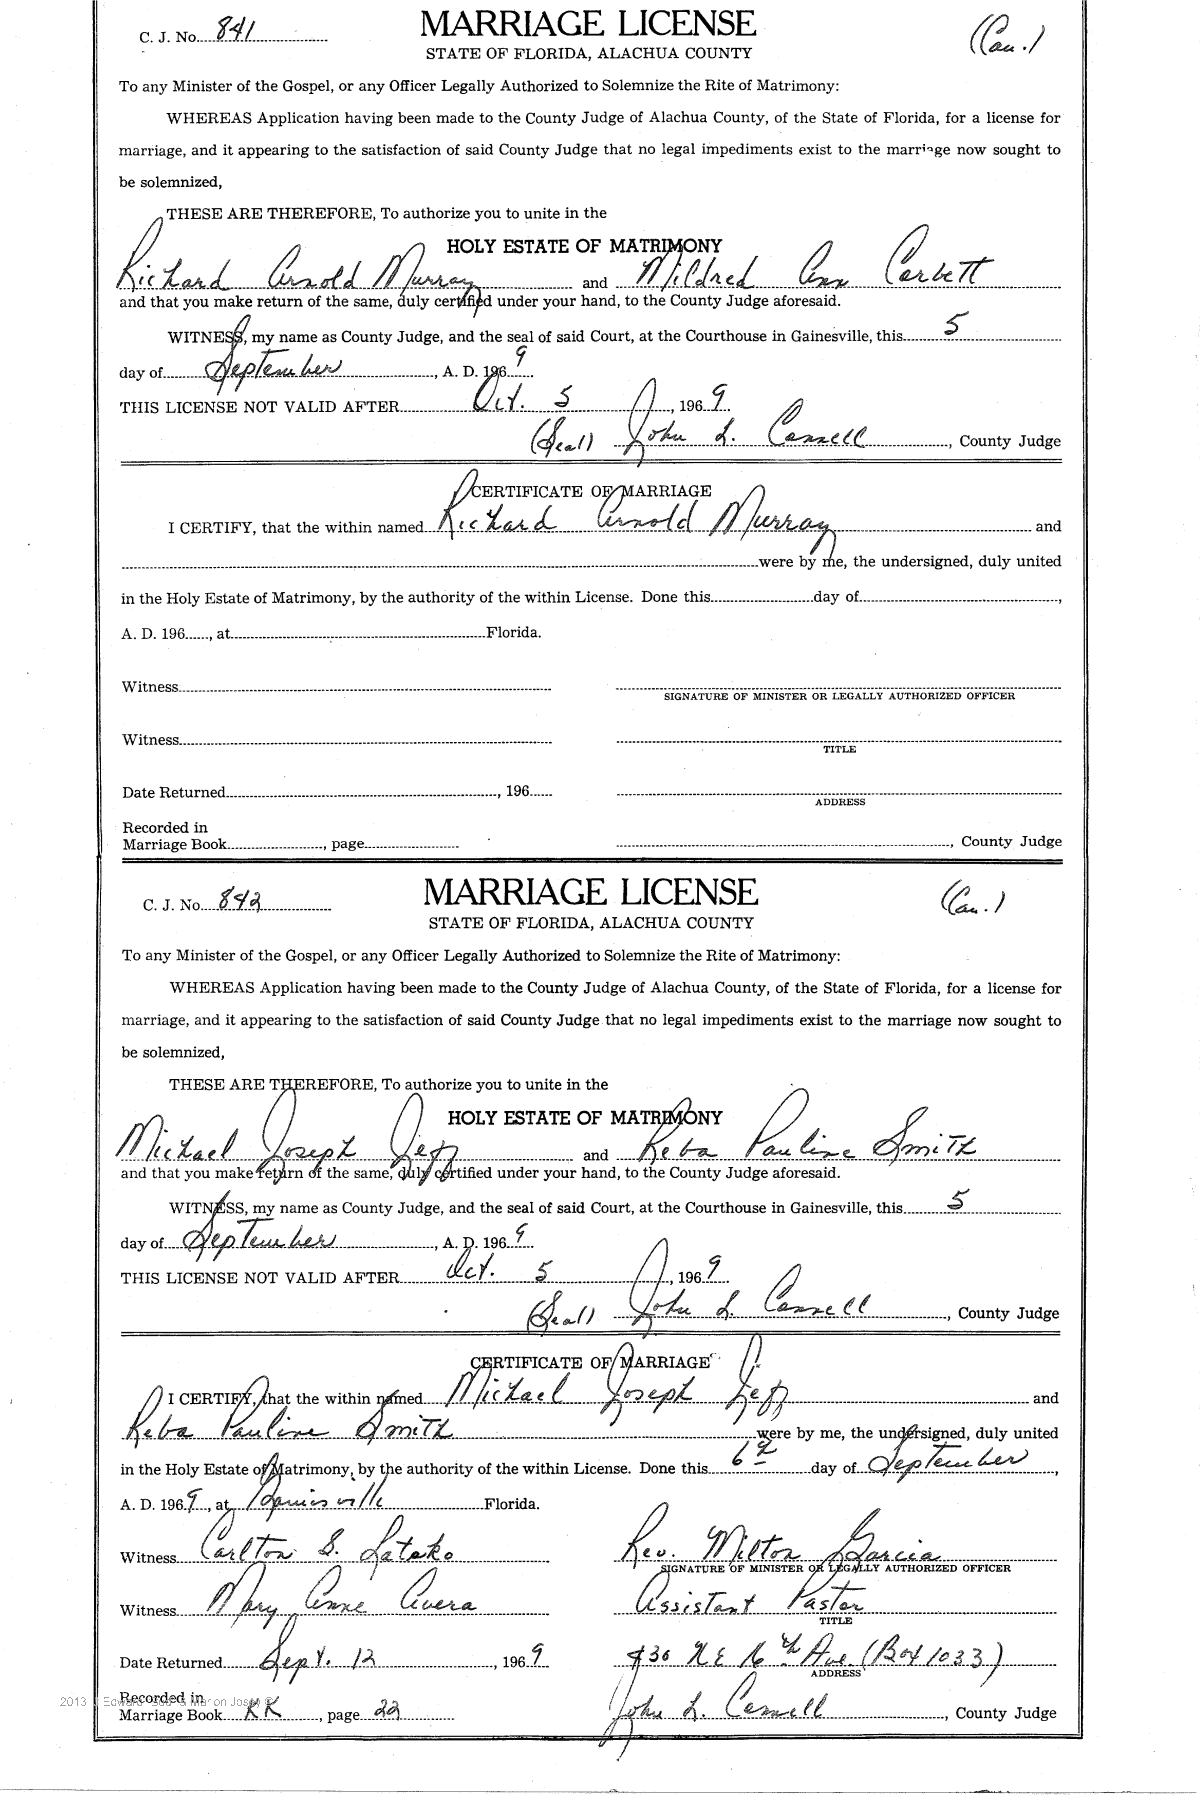 C. J. No. 841
MARRIAGE LICENSE
(Cau.)
STATE OF FLORIDA, ALACHUA COUNTY
To any Minister of the Gospel, or any Officer Legally Authorized to Solemnize the Rite of Matrimony:
WHEREAS Application having been made to the County Judge of Alachua County, of the State of Florida, for a license for
marriage, and it appearing to the satisfaction of said County Judge that no legal impediments exist to the marriage now sought to
be solemnized,
THESE ARE THEREFORE, To authorize you to unite in the
HOLY ESTATE OF MATRIMONY
Richard Arnold Murray and Mildred Ann Corbett
and that you make return of the same, duly certified under your hand, to the County Judge aforesaid.
WITNESS, my name as County Judge, and the seal of said Court, at the Courthouse in Gainesville, this 5
day of September, A. D. 1969
THIS LICENSE NOT VALID AFTER Oct. 5, 1969
(Seal) John L. Connell, County Judge
CERTIFICATE OF MARRIAGE
I CERTIFY, that the within named Richard Arnold Murray and
were by me, the undersigned, duly united
in the Holy Estate of Matrimony, by the authority of the within License. Done this day of ,
A. D. 196 , at Florida.
Witness
SIGNATURE OF MINISTER OR LEGALLY AUTHORIZED OFFICER
Witness
TITLE
Date Returned , 196
ADDRESS
Recorded in
Marriage Book , page , County Judge
C. J. No. 842
MARRIAGE LICENSE
(Cau.)
STATE OF FLORIDA, ALACHUA COUNTY
To any Minister of the Gospel, or any Officer Legally Authorized to Solemnize the Rite of Matrimony:
WHEREAS Application having been made to the County Judge of Alachua County, of the State of Florida, for a license for
marriage, and it appearing to the satisfaction of said County Judge that no legal impediments exist to the marriage now sought to
be solemnized,
THESE ARE THEREFORE, To authorize you to unite in the
HOLY ESTATE OF MATRIMONY
Michael Joseph and Reba Pauline Smith
and that you make return of the same, duly certified under your hand, to the County Judge aforesaid.
WITNESS, my name as County Judge, and the seal of said Court, at the Courthouse in Gainesville, this 5
day of September, A. D. 1969
THIS LICENSE NOT VALID AFTER Oct. 5, 1969
(Seal) John L. Connell, County Judge
CERTIFICATE OF MARRIAGE
I CERTIFY, that the within named Michael Joseph and
Reba Pauline Smith were by me, the undersigned, duly united
in the Holy Estate of Matrimony, by the authority of the within License. Done this 6th day of September,
A. D. 1969, at Gainesville Florida.
Witness Carlton S. Latsko
Rev. Milton Garcia
SIGNATURE OF MINISTER OR LEGALLY AUTHORIZED OFFICER
Witness Mary Anne Avera
Assistant Pastor
TITLE
Date Returned Sept. 12, 1969
NE 16th Ave. (Box 1033)
ADDRESS
Recorded in
Marriage Book KK, page 22
John L. Connell, County Judge
2013